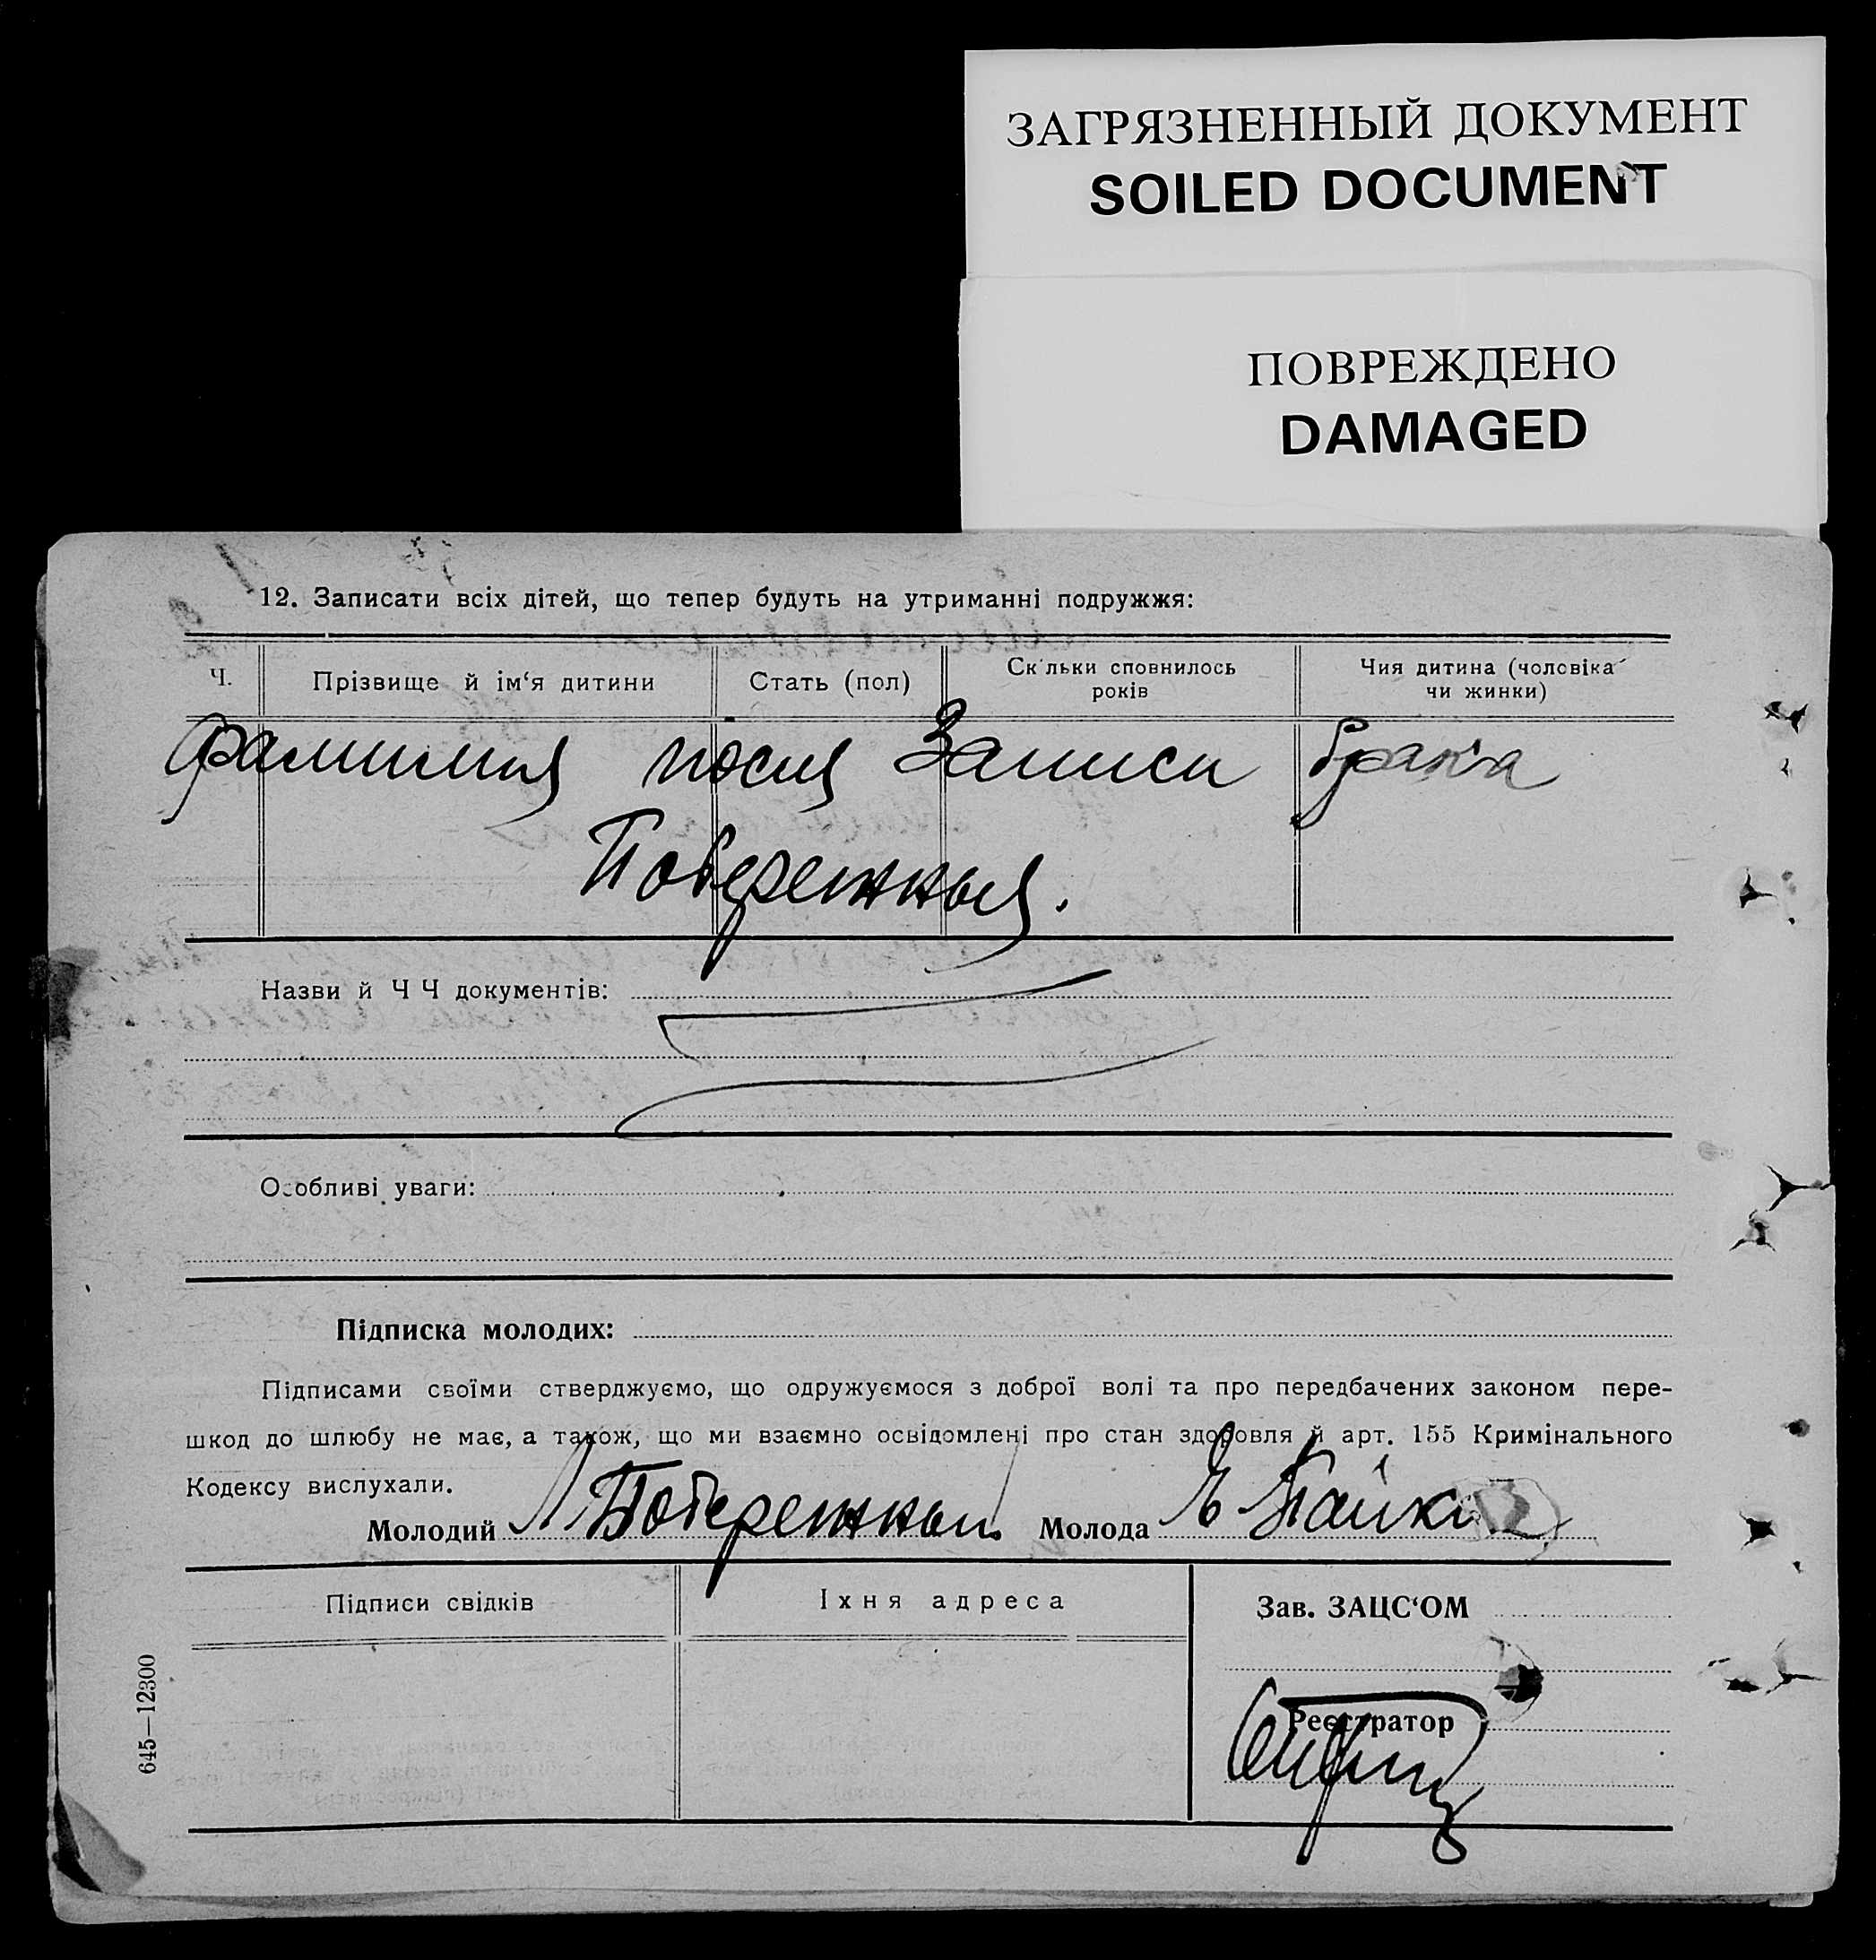 ЗАГРЯЗНЕННЫЙ ДОКУМЕНТ
SOILED DOCUMENT
ПОВРЕЖДЕНО
DAMAGED
12. Записати всіх дітей, що тепер будуть на утриманні подружжя:
Ч. Прізвище й ім‘я дитини Стать (пол) Скільки сповнилось років Чия дитина (чоловіка чи жинки)
фамилия посля Записи брака
Побережныя.
Назви й Ч Ч документів:
Особливі уваги:
Підписка молодих:
Підписами своїми стверджуємо, що одружуємося з доброї волі та про передбачених законом пере-
шкод до шлюбу не має, а також, що ми взаємно освідомлені про стан здоровля й арт. 155 Кримінального
Кодексу вислухали.
Молодий Побережный Молода
Підписи свідків Їхня адреса Зав. ЗАЦС‘ОМ
Реєстратор
645—12300